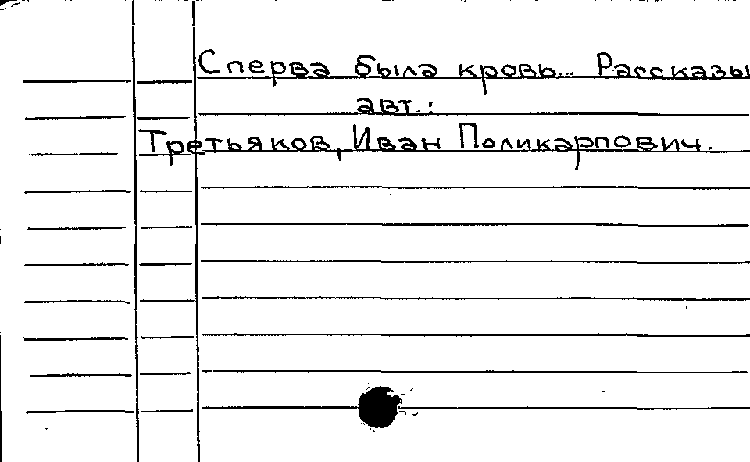 Сперва была кровь... Рассказы
авт.:
Третьяков, Иван Поликарпович.